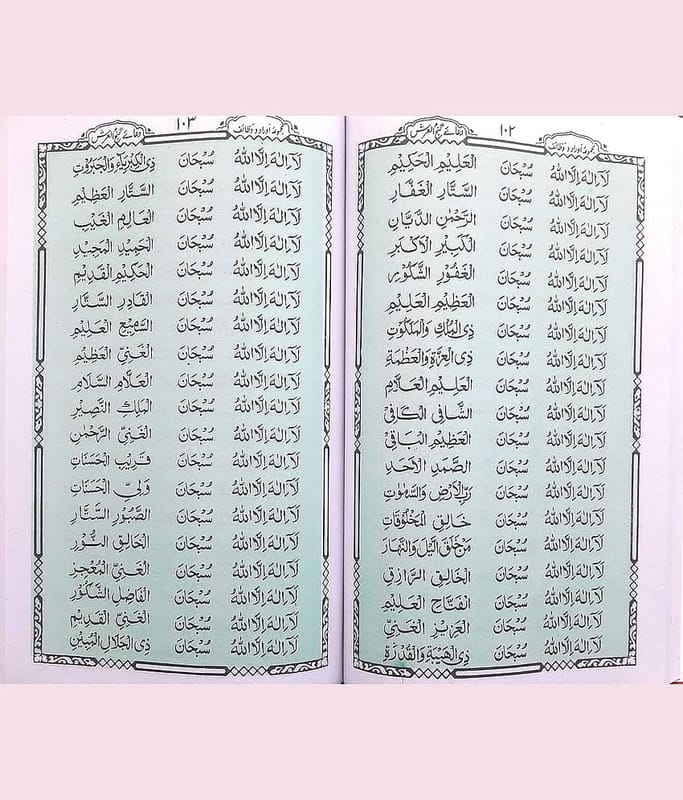 مجموعہ اوراد و وظائف ۱۰۲ دعائے گنج العرش
لَآ اِلٰهَ اِلَّا اللّٰهُ سُبْحَانَ الْعَلِيْمِ الْحَكِيْمِ
لَآ اِلٰهَ اِلَّا اللّٰهُ سُبْحَانَ السَّتَّارِ الْغَفَّارِ
لَآ اِلٰهَ اِلَّا اللّٰهُ سُبْحَانَ الرَّحْمٰنِ الدَّيَّانِ
لَآ اِلٰهَ اِلَّا اللّٰهُ سُبْحَانَ الْكَبِيْرِ الْاَكْبَرِ
لَآ اِلٰهَ اِلَّا اللّٰهُ سُبْحَانَ الْغَفُوْرِ الشَّكُوْرِ
لَآ اِلٰهَ اِلَّا اللّٰهُ سُبْحَانَ الْعَظِيْمِ الْعَلِيْمِ
لَآ اِلٰهَ اِلَّا اللّٰهُ سُبْحَانَ ذِى الْمُلْكِ وَالْمَلَكُوْتِ
لَآ اِلٰهَ اِلَّا اللّٰهُ سُبْحَانَ ذِى الْعِزَّةِ وَالْعَظْمَةِ
لَآ اِلٰهَ اِلَّا اللّٰهُ سُبْحَانَ الْعَلِيْمِ الْعَلَّامِ
لَآ اِلٰهَ اِلَّا اللّٰهُ سُبْحَانَ الشَّافِى الْكَافِىْ
لَآ اِلٰهَ اِلَّا اللّٰهُ سُبْحَانَ الْعَظِيْمِ الْبَاقِىْ
لَآ اِلٰهَ اِلَّا اللّٰهُ سُبْحَانَ الصَّمَدِ الْاَحَدِ
لَآ اِلٰهَ اِلَّا اللّٰهُ سُبْحَانَ رَبِّ الْاَرْضِ وَالسَّمٰوٰتِ
لَآ اِلٰهَ اِلَّا اللّٰهُ سُبْحَانَ خَالِقِ الْمَخْلُوْقَاتِ
لَآ اِلٰهَ اِلَّا اللّٰهُ سُبْحَانَ مَنْ خَلَقَ الَّيْلَ وَالنَّهَارَ
لَآ اِلٰهَ اِلَّا اللّٰهُ سُبْحَانَ الْخَالِقِ الرَّازِقِ
لَآ اِلٰهَ اِلَّا اللّٰهُ سُبْحَانَ الْفَتَّاحِ الْعَلِيْمِ
لَآ اِلٰهَ اِلَّا اللّٰهُ سُبْحَانَ الْعَزِيْزِ الْغَنِىِّ
لَآ اِلٰهَ اِلَّا اللّٰهُ سُبْحَانَ ذِى الْهَيْبَةِ وَالْقُدْرَةِ
مجموعہ اوراد و وظائف ۱۰۳ دعائے گنج العرش
لَآ اِلٰهَ اِلَّا اللّٰهُ سُبْحَانَ ذِى الْكِبْرِيَآءِ وَالْجَبَرُوْتِ
لَآ اِلٰهَ اِلَّا اللّٰهُ سُبْحَانَ السَّتَّارِ الْعَظِيْمِ
لَآ اِلٰهَ اِلَّا اللّٰهُ سُبْحَانَ الْعَالِمِ الْغَيْبِ
لَآ اِلٰهَ اِلَّا اللّٰهُ سُبْحَانَ الْحَمِيْدِ الْمَجِيْدِ
لَآ اِلٰهَ اِلَّا اللّٰهُ سُبْحَانَ الْحَكِيْمِ الْقَدِيْمِ
لَآ اِلٰهَ اِلَّا اللّٰهُ سُبْحَانَ الْقَادِرِ السَّتَّارِ
لَآ اِلٰهَ اِلَّا اللّٰهُ سُبْحَانَ السَّمِيْعِ الْعَلِيْمِ
لَآ اِلٰهَ اِلَّا اللّٰهُ سُبْحَانَ الْغَنِىِّ الْعَظِيْمِ
لَآ اِلٰهَ اِلَّا اللّٰهُ سُبْحَانَ الْعَلَّامِ السَّلَامِ
لَآ اِلٰهَ اِلَّا اللّٰهُ سُبْحَانَ الْمَلِكِ النَّصِيْرِ
لَآ اِلٰهَ اِلَّا اللّٰهُ سُبْحَانَ الْغَنِىِّ الرَّحْمٰنِ
لَآ اِلٰهَ اِلَّا اللّٰهُ سُبْحَانَ قَرِيْبِ الْحَسَنَاتِ
لَآ اِلٰهَ اِلَّا اللّٰهُ سُبْحَانَ وَلِىِّ الْحَسَنَاتِ
لَآ اِلٰهَ اِلَّا اللّٰهُ سُبْحَانَ الصَّبُوْرِ السَّتَّارِ
لَآ اِلٰهَ اِلَّا اللّٰهُ سُبْحَانَ الْخَالِقِ النُّوْرِ
لَآ اِلٰهَ اِلَّا اللّٰهُ سُبْحَانَ الْغَنِىِّ الْمُعْجِزِ
لَآ اِلٰهَ اِلَّا اللّٰهُ سُبْحَانَ الْفَاضِلِ الشَّكُوْرِ
لَآ اِلٰهَ اِلَّا اللّٰهُ سُبْحَانَ الْغَنِىِّ الْقَدِيْمِ
لَآ اِلٰهَ اِلَّا اللّٰهُ سُبْحَانَ ذِى الْجَلَالِ الْمُبِيْنِ